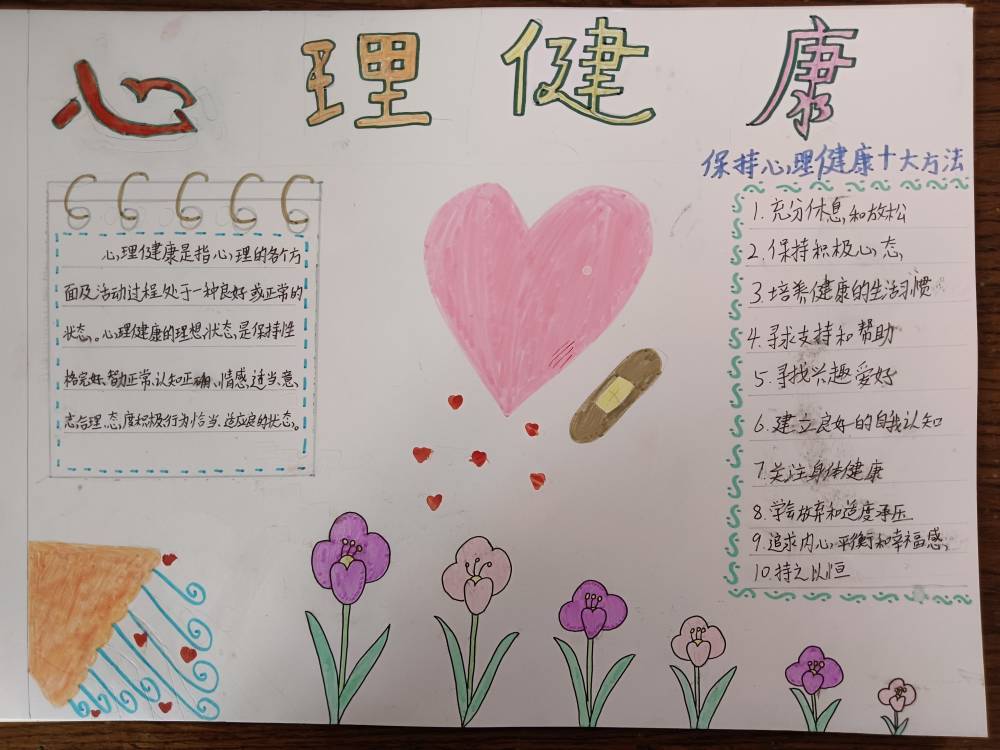 心理健康
心理健康是指心理的各个方
面及活动过程处于一种良好或正常的
状态。心理健康的理想状态是保持性
格完好、智力正常、认知正确、情感适当、意
志合理、态度积极、行为恰当、适应良的状态。
保持心理健康十大方法
1.充分休息和放松
2.保持积极心态
3.培养健康的生活习惯
4.寻求支持和帮助
5.寻找兴趣爱好
6.建立良好的自我认知
7.关注身体健康
8.学会放弃和适度承压
9.追求内心平衡和幸福感
10.持之以恒